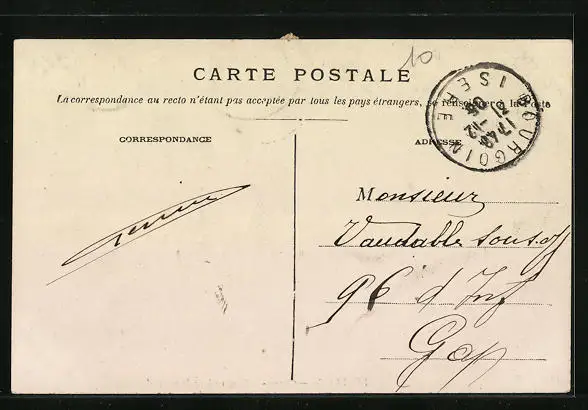 10
CARTE POSTALE
La correspondance au recto n'étant pas acceptée par tous les pays étrangers, se renseigner à la Poste
CORRESPONDANCE
ADRESSE
BOURGOIN
ISERE
Monsieur
Vaudable sous-off
96 d Inf
Gap